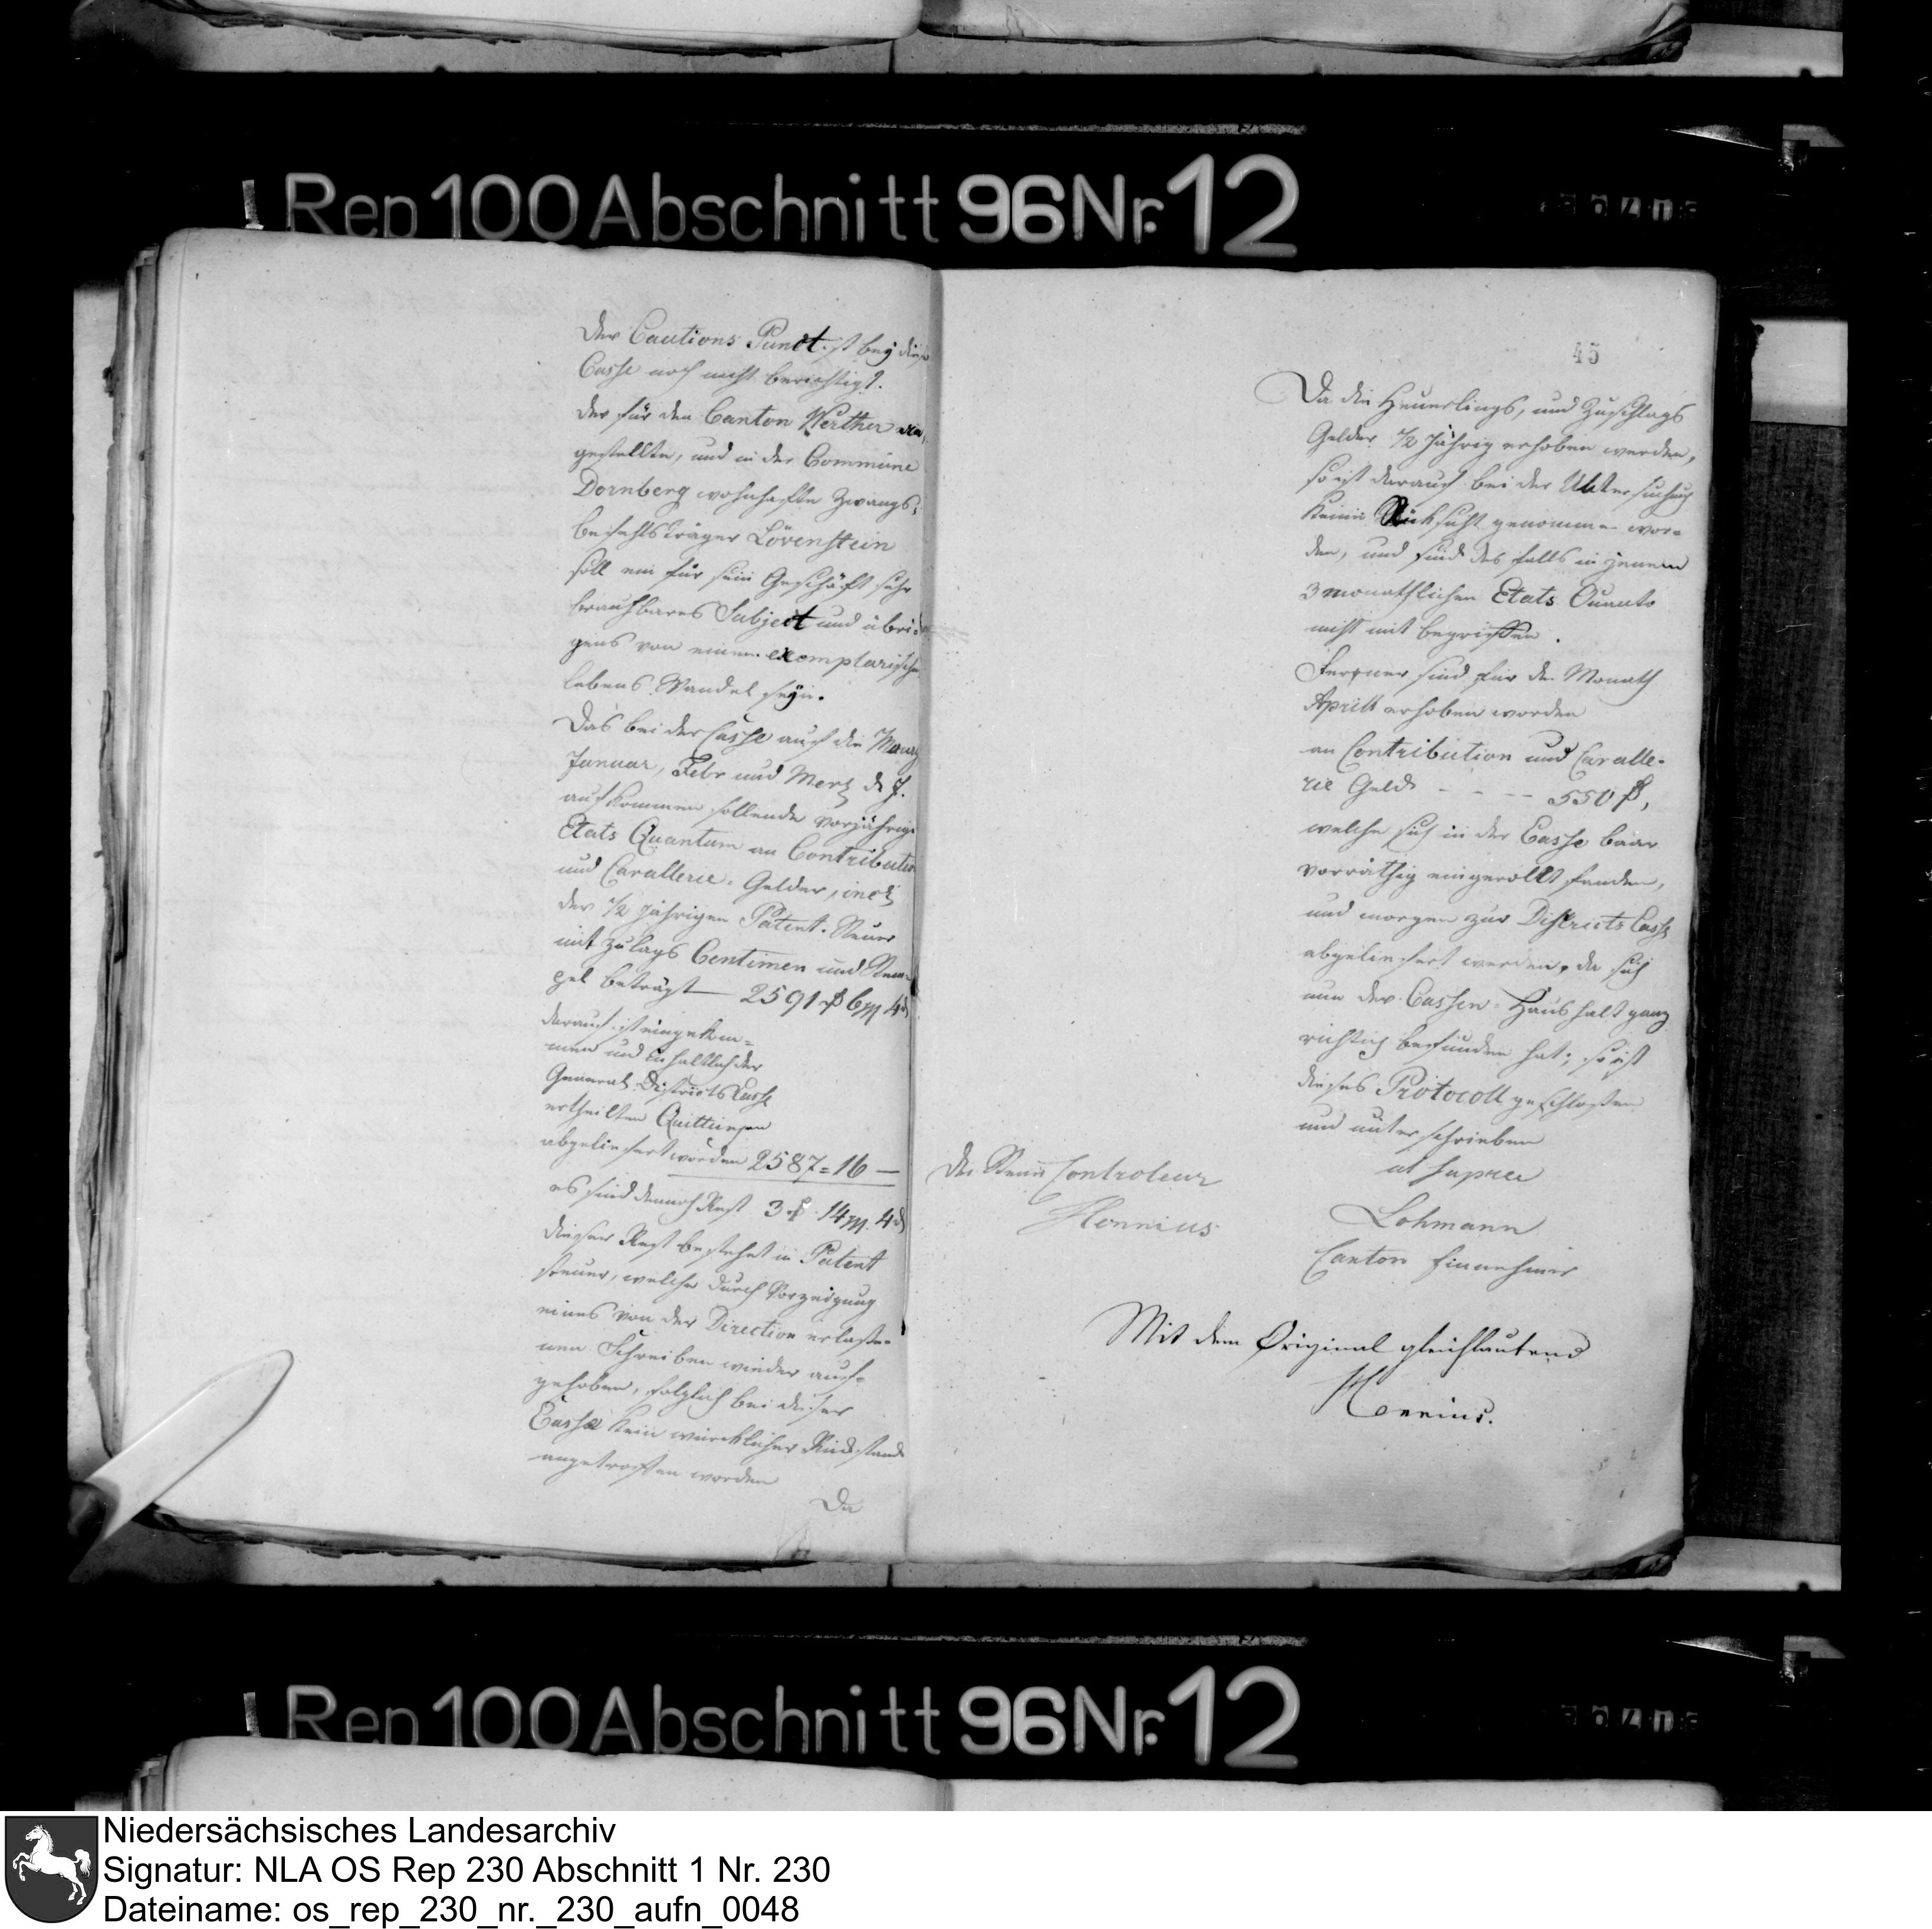 Rep 100 Abschnitt 96 Nr. 12
Der Cautions Punct ist bey dieser
Casse noch nicht berichtigt.
Der für den Canton Werther an-
gestellte, und in der Commüne
Dornberg wohnhafte Zwangs-
befehlsträger Lövenstein
soll ein für sein Geschäft sehr
brauchbares Subject und übri-
gens von einem exemplarischen
lebens Wandel seyn.
Das bei der Casse auf die Monath
Januar, Febr und Mertz d. J.
aufkommen sollende vorjährige
Etats Quantum an Contribution
und Cavallerie-Gelder, incl.
der 1/2 jährigen Patent-Steuer
mit Zulags Centimen und Stem-
pel beträgt — 2591 rf 6 m 4 d
darauf ist eingekom-
men und inhaltlich der
General Districts Casse
ertheilten Quittungen
abgeliefert worden 2587 = 16 —
es sind demnach Rest 3 rf 14 m. 4 d
Dieser Rest bestehet in Patent
steuer, welche durch Vorzeigung
eines von der Direction erlasse-
nen Schreiben wieder auf-
gehoben, folglich bei dieser
Casse kein würcklicher Rückstand
angetroffen worden
Da
45
Da die Heuerlings, und Zuschlags
Gelder 1/2 jährig erhoben werden,
so ist darauf bei der Untersuchung
keine Rücksicht genommen wor-
den, und sind des falls in jenem
3 monathlichen Etats Quanto
nicht mit begriffen.
Ferner sind für den Monath
Aprill erhoben worden
an Contribution und Cavalle-
rie Geld - - - - 550 rf,
welche sich in der Casse baar
vorräthig eingerollt fanden,
und morgen zur Districts Casse
abgeliefert werden, da sich
nun der Cassen-Haushalt ganz
richtig befunden hat; so ist
dieses Protocoll geschlossen
und unterschrieben
ut supra
Der Steuer Controleur
Hennius
Lohmann
Canton Einnehmer
Mit dem Original gleichlautend
Hennius.
Rep 100 Abschnitt 96 Nr. 12
Niedersächsisches Landesarchiv
Signatur: NLA OS Rep 230 Abschnitt 1 Nr. 230
Dateiname: os_rep_230_nr._230_aufn_0048